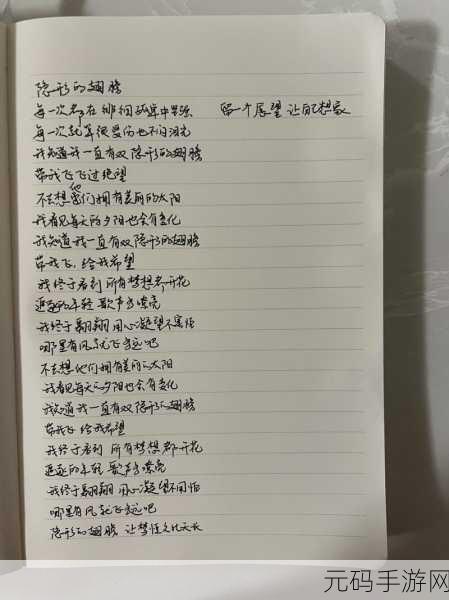 隐形的翅膀
每一次都在徘徊孤单中坚强
每一次就算很受伤也不闪泪光
我知道我一直有双隐形的翅膀
带我飞飞过绝望
不去想他们拥有美丽的太阳
我看见每天的夕阳也会有变化
我知道我一直有双隐形的翅膀
带我飞,给我希望
我终于看到 所有梦想都开花
追逐的年轻 歌声多嘹亮
我终于翱翔 用心凝望不害怕
哪里有风就飞多远吧
不去想他们拥有美丽太阳
我看见每天的夕阳也会有变化
我知道我一直有双隐形的翅膀
带我飞 给我希望
我终于看到 所有梦想都开花
追逐的年轻 歌声多嘹亮
我终于翱翔 用心凝望不害怕
哪里有风就飞多远吧
隐形的翅膀 让梦恒久比天长
留一个愿望 让自己想象
元码手游网